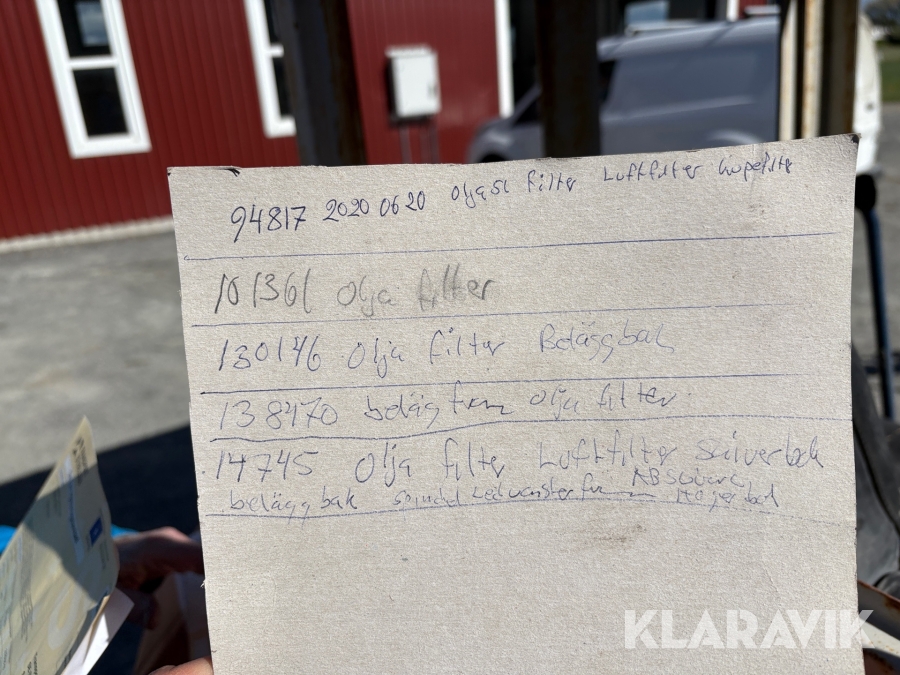 94817 2020 06 20 olja filter Luftfilter kupefilter
101361 olja filter
130146 olja filter Beläggbak
138470 beläg fram olja filter
14745 olja filter Luftfilter Skiverbak
beläggbak spindelled vänster fram AB
Höger bak
KLARAVIK